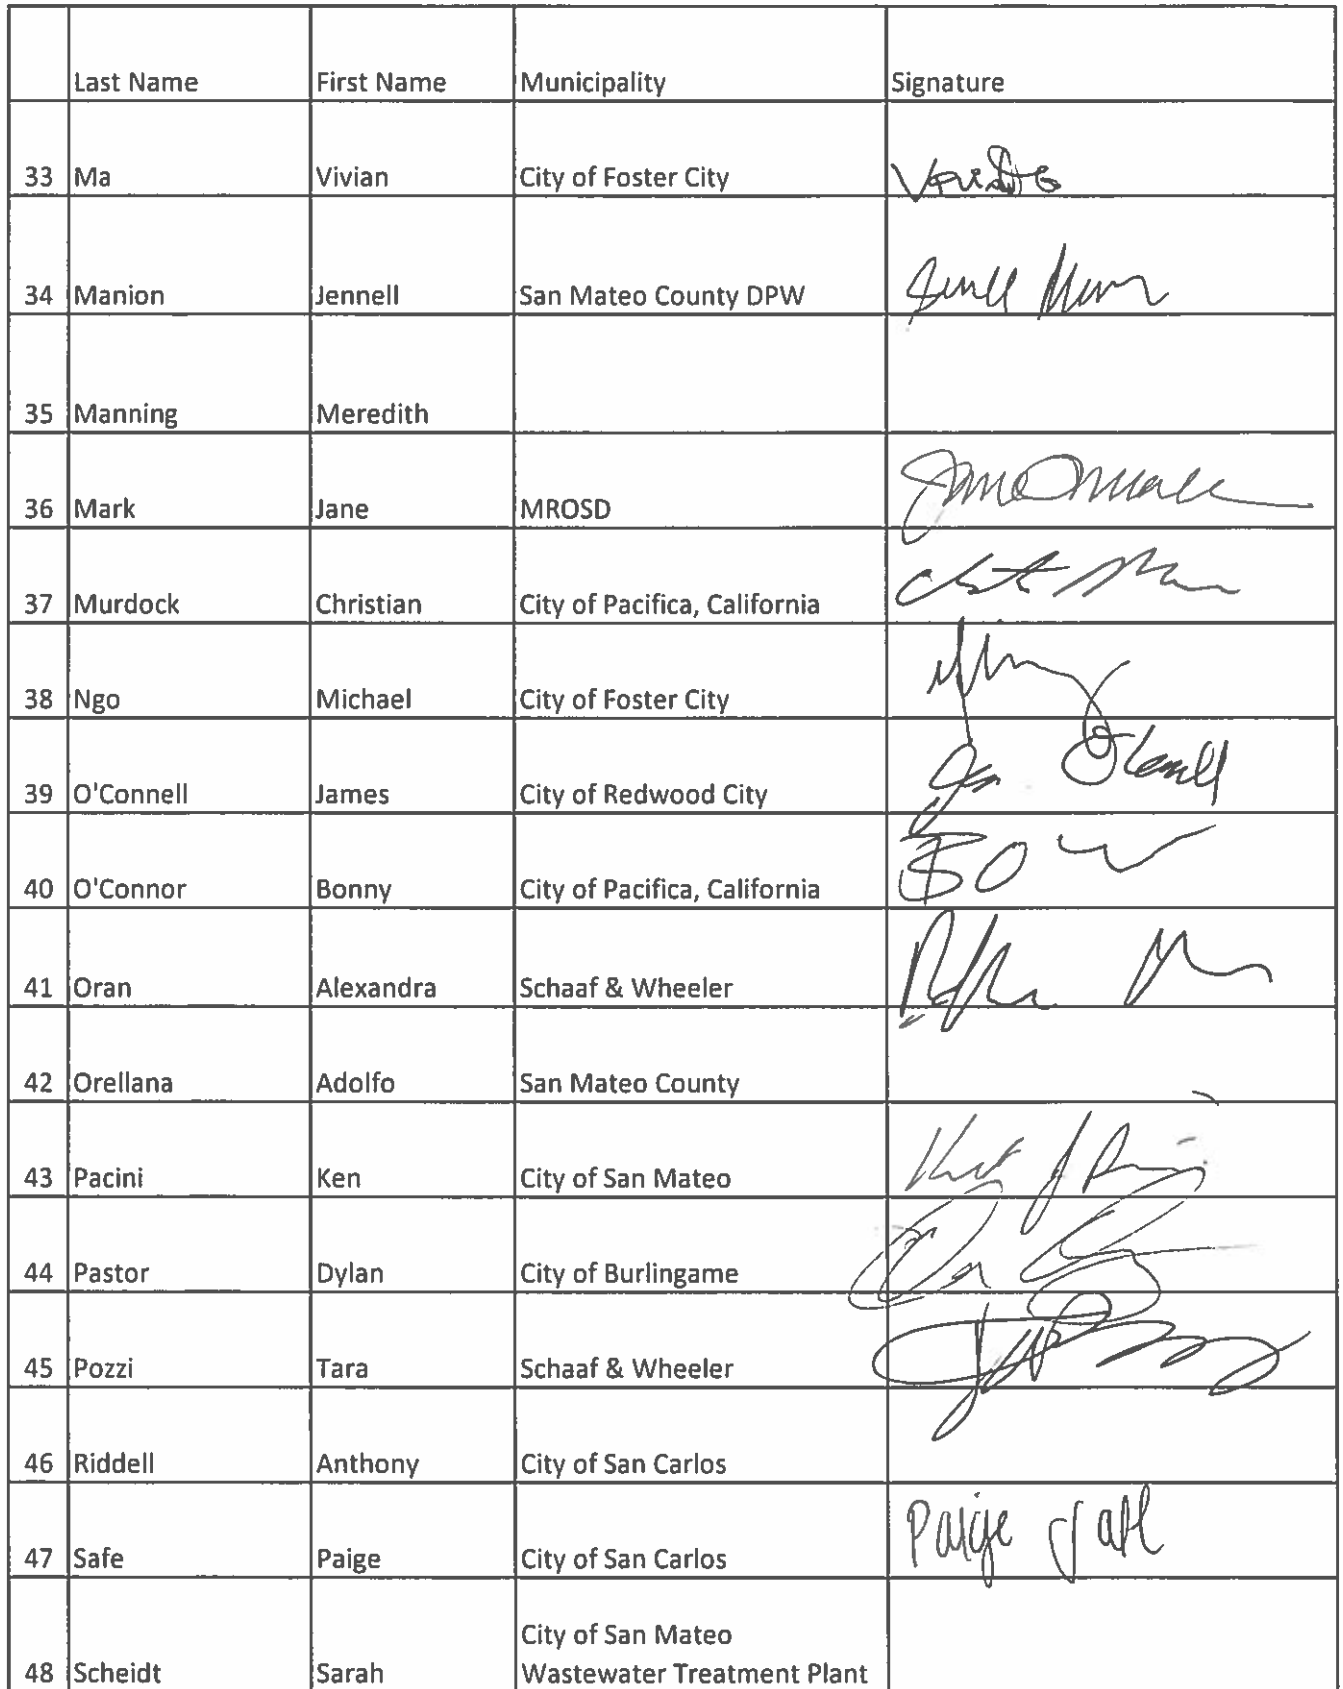 Last Name First Name Municipality Signature
33 Ma Vivian City of Foster City
34 Manion Jennell San Mateo County DPW
35 Manning Meredith
36 Mark Jane MROSD
37 Murdock Christian City of Pacifica, California
38 Ngo Michael City of Foster City
39 O'Connell James City of Redwood City
40 O'Connor Bonny City of Pacifica, California
41 Oran Alexandra Schaaf & Wheeler
42 Orellana Adolfo San Mateo County
43 Pacini Ken City of San Mateo
44 Pastor Dylan City of Burlingame
45 Pozzi Tara Schaaf & Wheeler
46 Riddell Anthony City of San Carlos
47 Safe Paige City of San Carlos Paige
City of San Mateo
48 Scheidt Sarah Wastewater Treatment Plant